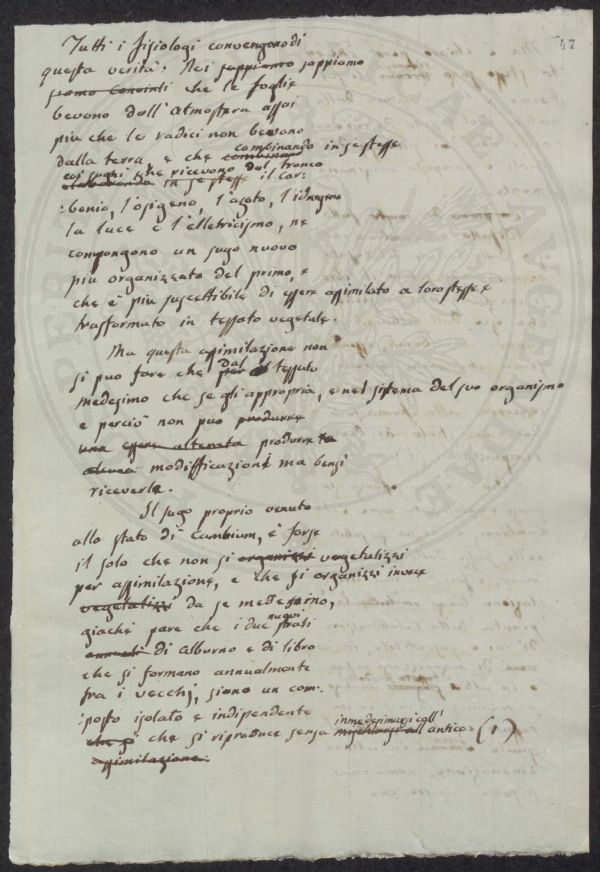 42
Tutti i fisiologi convengono di
questa verità: Noi sappiamo sappiamo
siamo Convinti che le foglie
bevono dall'atmosfera assai
più che le radici non bevono
dalla terra, e che combinando in se stesse
coi sughi che ricevono dal tronco
elaborando in se stesse il car:
:bonio, l'osigeno, l'azoto, l'idrogeno
la luce e l'elletricismo, ne
compongono un sugo nuovo
più organizzato del primo, e
che è più suscettibile di essere assimilato a loro stesse e
trasformato in tessuto vegetale.
Ma questa assimilazione non
si può fare che dal tessuto
medesimo che se gli appropria, e nel sistema del suo organismo
e perciò non può produrre
una essere alterata produrre
alcuna modifficazioni ma bensì
riceverle.
Il sugo proprio venuto
allo stato di Cambium, è forse
il solo che non si organizzi vegetalizzi
per assimilazione, e che si organizzi invece
vegetalizzi da se medesimo,
giachè pare che i due nuovi strati
annuali di alburno e di libro
che si formano annualmente
fra i vecchj, siano un com:
:posto isolato e indipendente
che si che si riproduce senza mischiarsi all' inmedesimarsi coll' antico (1)
assimilazione.